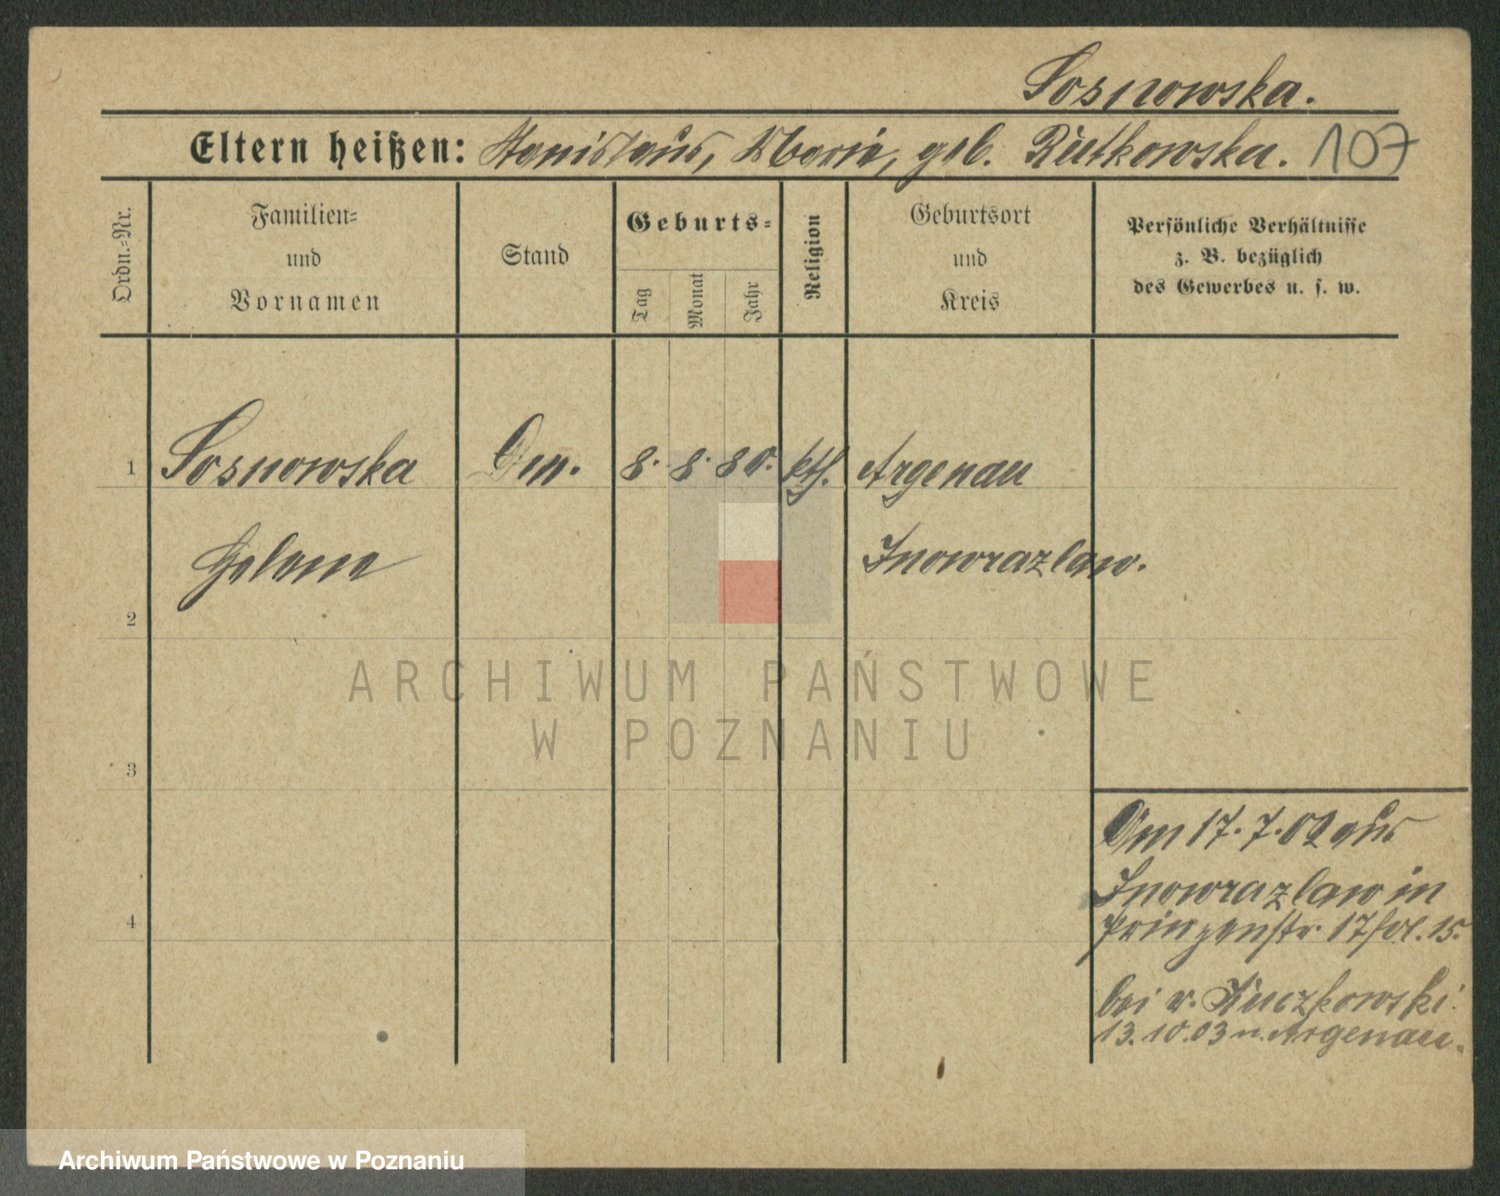 Sosnowska.
Eltern heißen: Stanislaus, Maria, geb. Rutkowska. 107
Ordn.-Nr.
Familien-
und
Vornamen
Stand
Geburts-
Tag
Monat
Jahr
Religion
Geburtsort
und
Kreis
Persönliche Verhältnisse
z. B. bezüglich
des Gewerbes u. s. w.
1 Sosnowska 8. 8. 80. kth. Argenau
Helene Inowrazlaw.
2
ARCHIWUM PAŃSTWOWE
W POZNANIU
3
4
Am 17. 7. 02 aus
Inowrazlaw in
Prinzenstr. 17 15.
bei v. Kuczkowski.
13.10.03 n. Argenau.
Archiwum Państwowe w Poznaniu